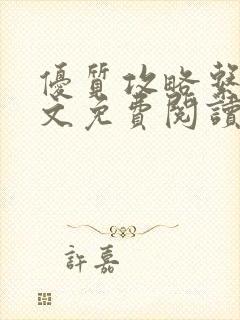 優質攻略繫
文免費閱讀
許嘉